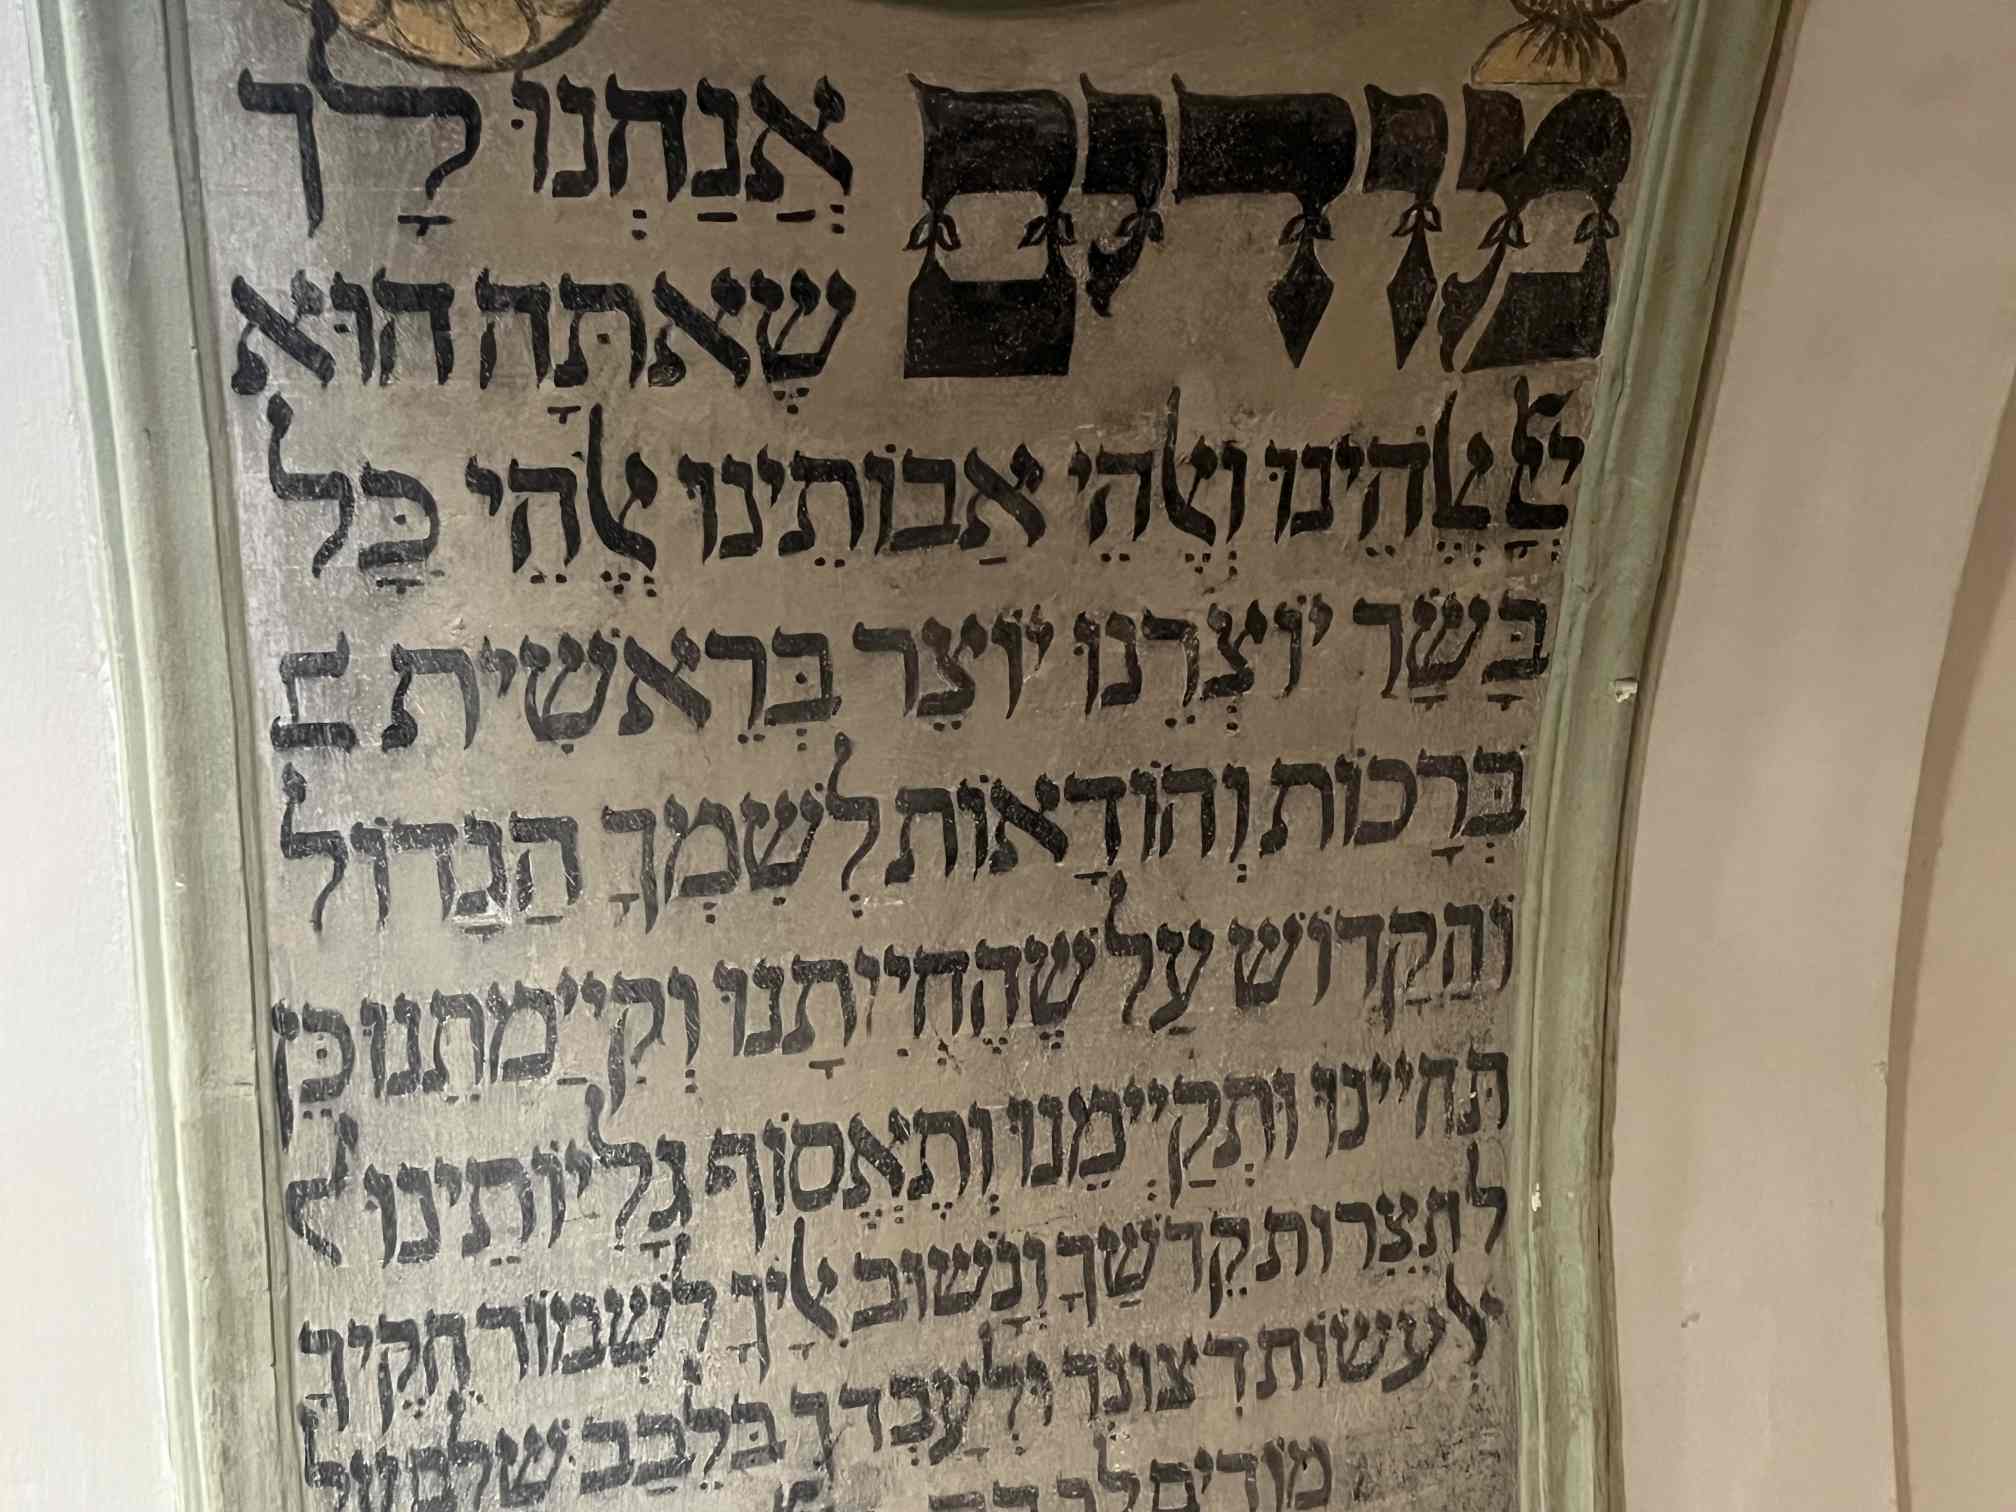 מודים אֲנַחְנוּ לָךְ
שֶׁאַתָּה הוּא
יְיָ אֱלֹהֵינוּ וֵאלֹהֵי אֲבוֹתֵינוּ אֱלֹהֵי כָּל
בָּשָׂר יוֹצְרֵנוּ יוֹצֵר בְּרֵאשִׁית ב
בְּרָכוֹת וְהוֹדָאוֹת לְשִׁמְךָ הַגָדוֹל
וְהַקָדוֹשׁ עַל שֶׁהֶחֱיִיתָנוּ וְקִיַימְתָנוּ כֵּן
תְּחַיֵינוּ וּתְקַיְימֵנוּ וְתֶאֱסוֹף גָלִיוֹתֵינוּ ל
לְחַצְרוֹת קָדְשֶׁךָ וְנָשׁוּב אֵלֶיךָ לִשְׁמוֹר חֻקֶיךָ
לַעֲשׂוֹת רְצוֹנְךָ וּלְעָבְדְךָ בְּלֵבָב שָׁלֵם עַל
מוֹדִים לָךְ